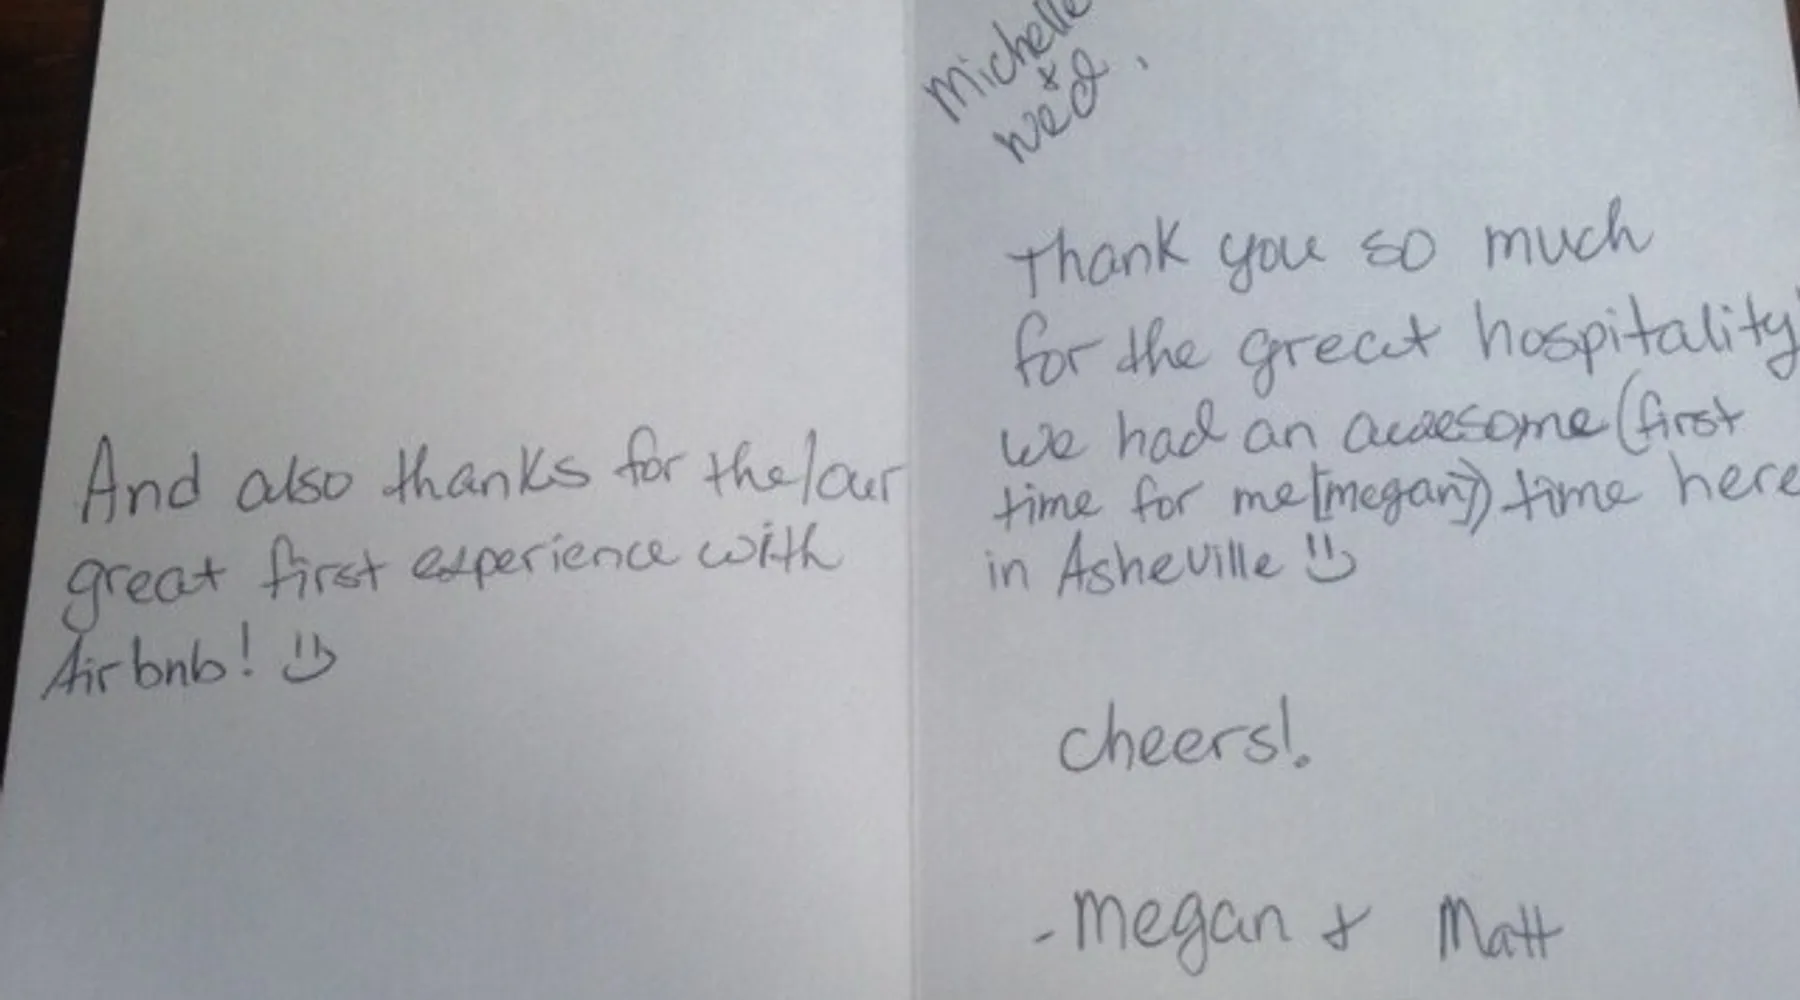 Michelle
+
Ned,
Thank you so much
for the great hospitality!
we had an awesome (first
time for me [megan]) time here
in Asheville :)
cheers!
- Megan + Matt
And also thanks for the/our
great first experience with
Airbnb! :)